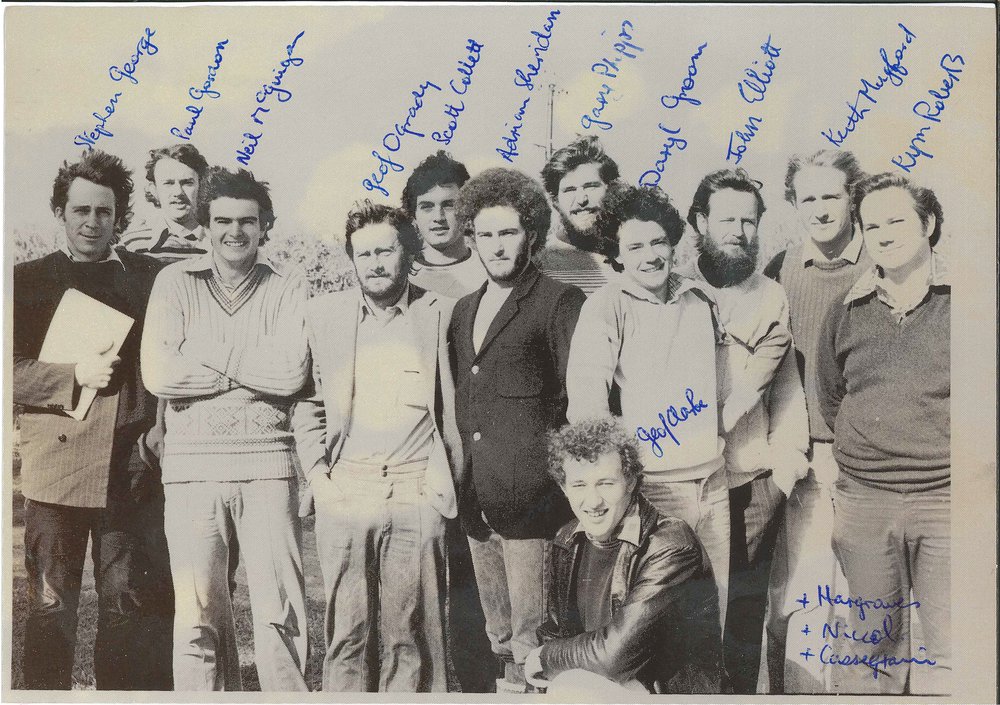 Stephen George
Paul Gordon
Neil McGuigan
Geof O'Grady
Scott Collett
Adrian Sheridan
Gary Phipps
Daryl Groom
John Elliott
Keith Mugford
Kym Roberts
Geof Clarke
+ Hargraves
+ Niccol
+ Cassegrain